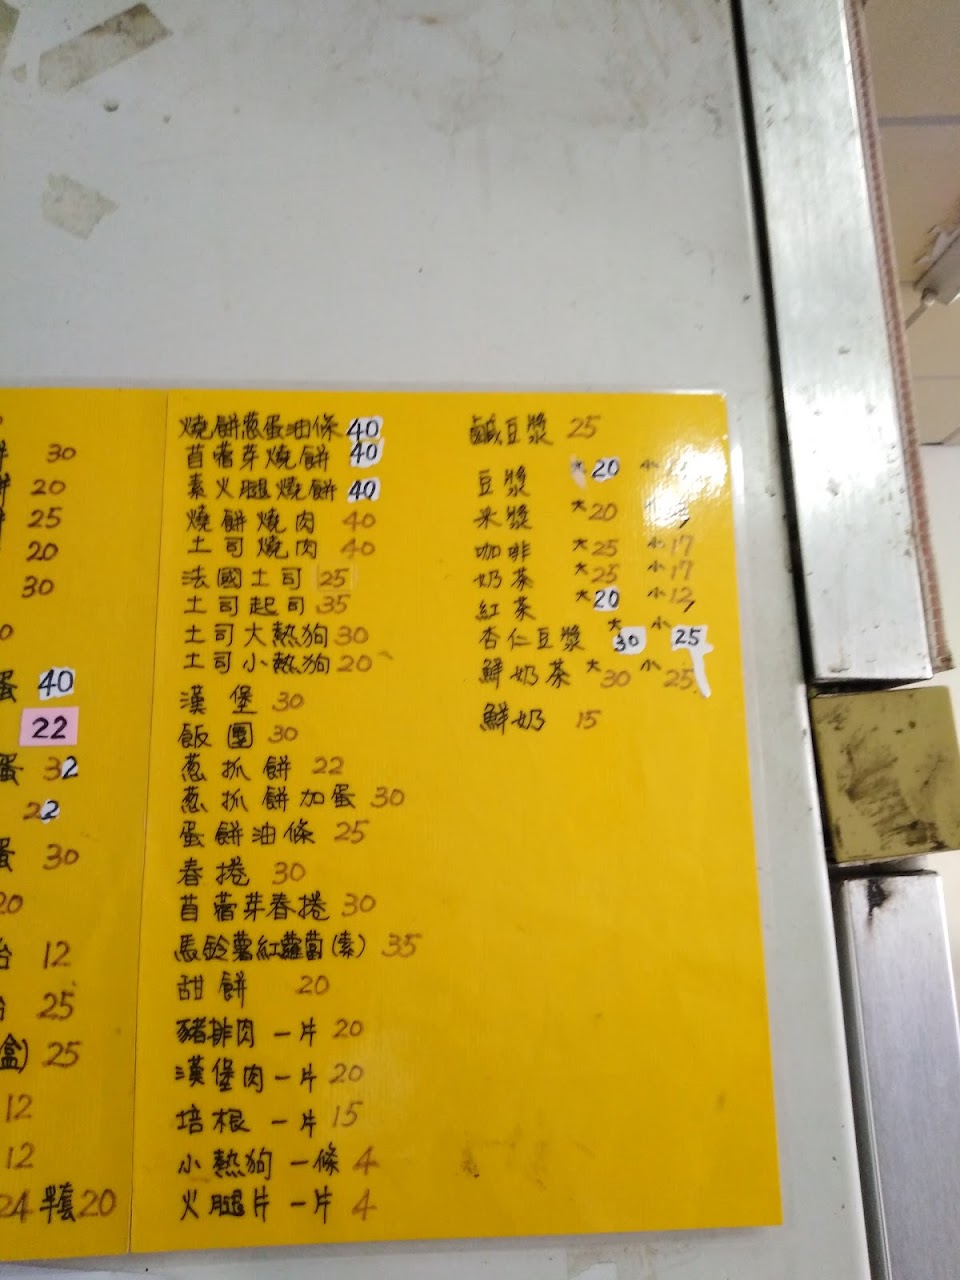 30
20
25
20
30
蛋 40
22
蛋 32
22
蛋 30
20
12
25
盒) 25
12
12
24 半套20
燒餅蔥蛋油條 40
苜蓿芽燒餅 40
素火腿燒餅 40
燒餅燒肉 40
土司燒肉 40
法國土司 25
土司起司 35
土司大熱狗 30
土司小熱狗 20
漢堡 30
飯團 30
蔥抓餅 22
蔥抓餅加蛋 30
蛋餅油條 25
春捲 30
苜蓿芽春捲 30
馬鈴薯紅蘿蔔(素) 35
甜餅 20
豬排肉一片 20
漢堡肉一片 20
培根一片 15
小熱狗一條 4
火腿片一片 4
鹹豆漿 25
豆漿 大20 小
米漿 大20
咖啡 大25 小17
奶茶 大25 小17
紅茶 大20 小12
杏仁豆漿 大30 小25
鮮奶茶 大30 小25
鮮奶 15